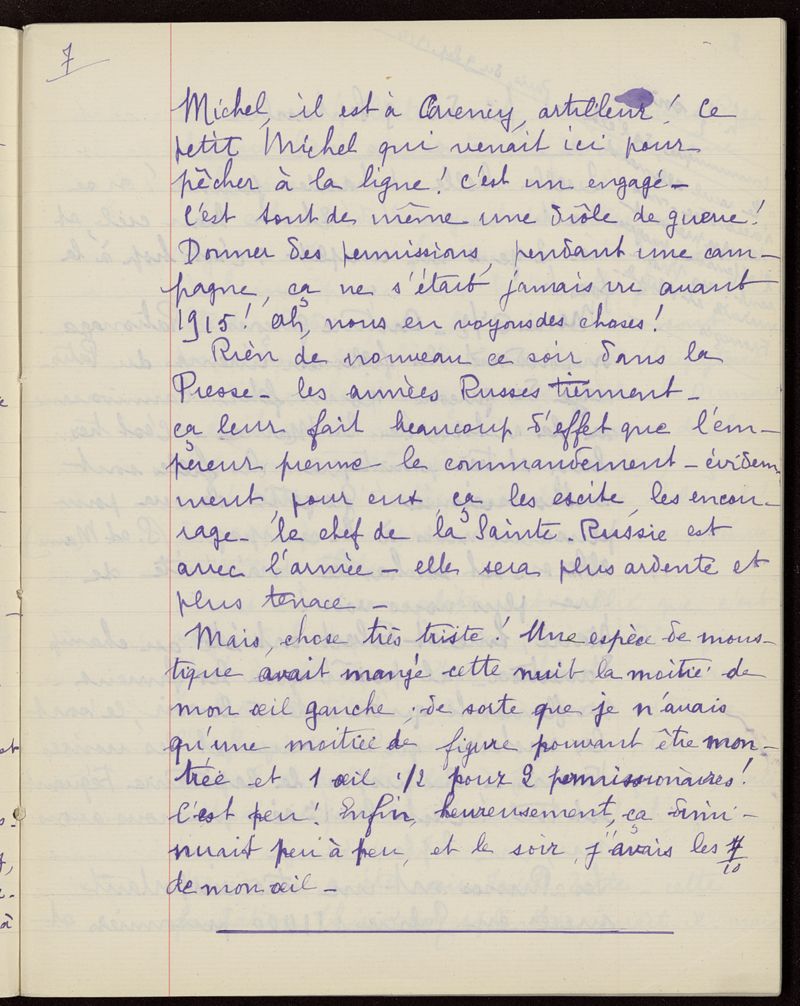 7
Michel, il est à Carency, artilleur! Ce
petit Michel qui venait ici pour
pêcher à la ligne! c'est un engagé -
C'est tout de même une drôle de guerre!
Donner des permissions, pendant une cam-
pagne, ça ne s'était jamais vu avant
1915! Ah, nous en voyons des choses!
Rien de nouveau ce soir dans la
Presse - les armées Russes tiennent -
ça leur fait beaucoup d'effet que l'em-
pereur prenne le commandement - évidem-
ment, pour eux, ça les excite, les encou-
rage - le chef de la Sainte Russie est
avec l'armée - elle sera plus ardente et
plus tenace -
Mais, chose très triste! Une espèce de mous-
tique avait mangé cette nuit la moitié de
mon œil gauche, de sorte que je n'avais
qu'une moitiée de figure pouvant être mon-
trée et 1 œil 1/2 pour 2 permissionaires!
C'est peu! Enfin, heureusement, ça dimi-
nuait peu à peu, et le soir, j'avais les 7/10
de mon œil -